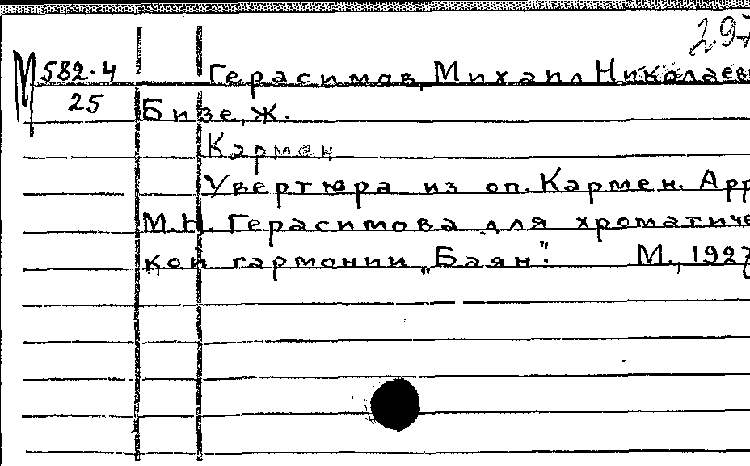 297
М 582-4 Герасимов, Михаил Николаеви
25 Бизе, Ж.
Кармен
Увертюра из оп. Кармен. Арр
М.Н. Герасимова для хроматиче
кой гармонии „Баян". М., 1927